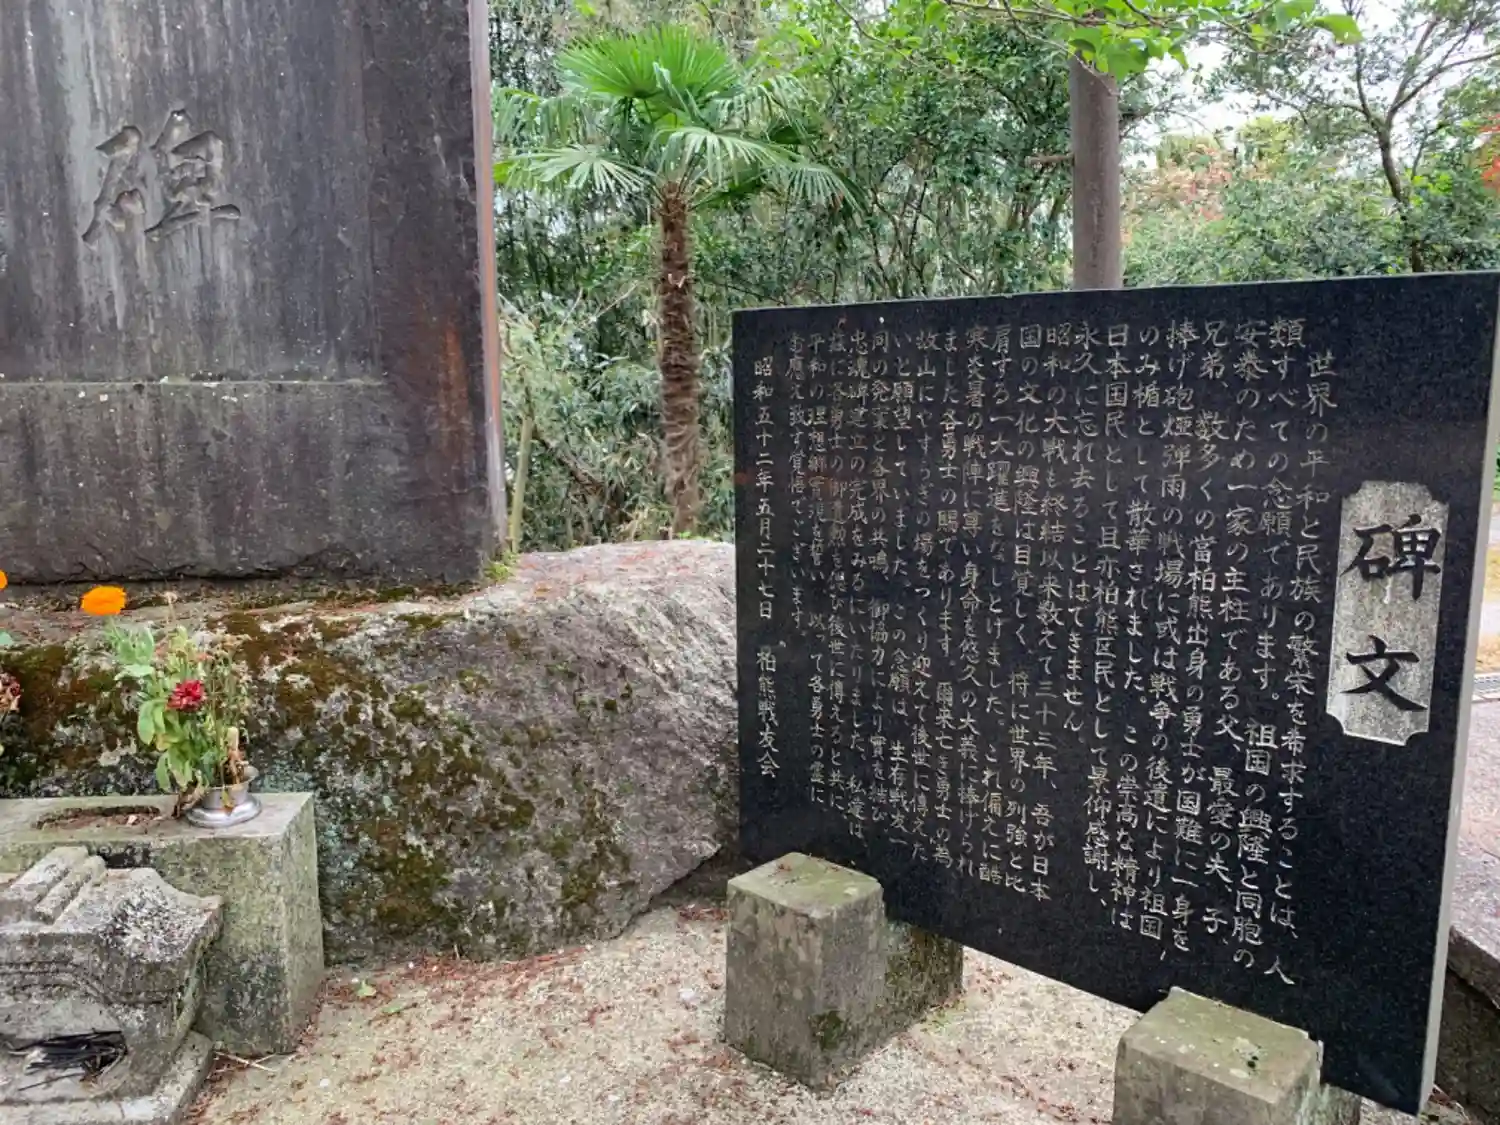 碑
碑文
世界の平和と民族の繁栄を希求することは、人
類すべての念願であります。祖国の興隆と同胞の
安泰のため一家の主柱である父、最愛の夫、子、
兄弟、数多くの當相熊出身の勇士が国難に一身を
捧げ砲煙弾雨の戦場に或は戦争の後遺により祖国
のみ楯として散華されました。この崇高な精神は
日本国民として且亦柏熊区民として景仰感謝し、
永久に忘れ去ることはできません
昭和の大戦も終結以来数えて三十三年、吾が日本
国の文化の興隆は目覚しく、将に世界の列強と比
肩する一大躍進をなしとげました。これ偏えに酷
寒炎暑の戦陣に尊い身命を悠久の大義に捧げられ
ました各勇士の賜であります。爾来亡き勇士の為
故山にやすらぎの場をつくり迎えて後世に傳えた
いと願望していました、この念願は、生存戦友一
同の発案と各界の共鳴、御協力により實を結び
忠魂碑建立の完成をみるにいたりました。私達は
茲に各勇士の御遺勲を偲び後世に傳えると共に
平和の理想郷實現を誓い、以って各勇士の霊に
昭和五十二年五月二十七日 柏熊戦友会